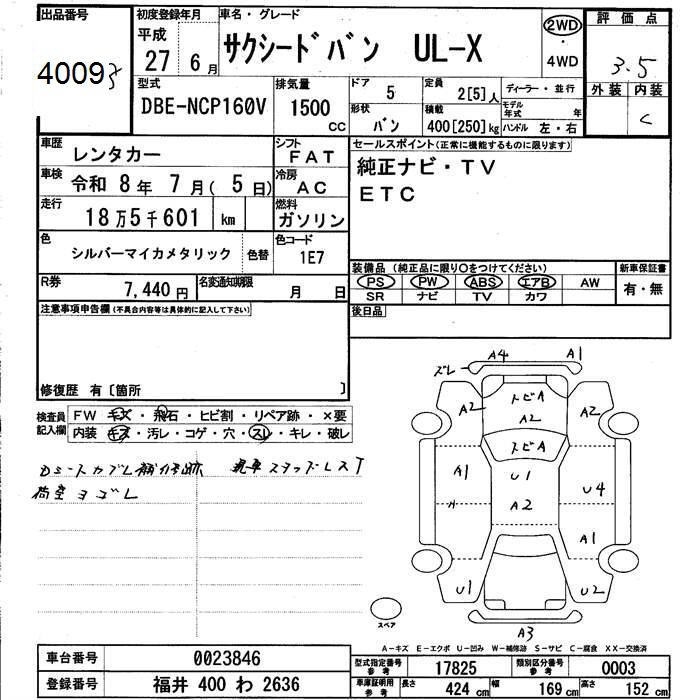 出品番号
40093
初度登録年月
平成
27年 6月
車名・グレード
サクシードバン UL-X
2WD
・
4WD
評価点
3.5
外装 内装
C
型式
DBE-NCP160V
排気量
1500
CC
ドア 5
形状 バン
定員 2[5]人
積載 400[250]kg
ディーラー・並行
モデル年式 年
ハンドル 左・右
車歴 レンタカー
シフト FAT
車検 令和 8年 7月( 5日)
冷房 AC
走行 18万5千601 km
燃料 ガソリン
色 シルバーマイカメタリック 色替
色コード 1E7
R券 7,440円
名変通知期限 月 日
セールスポイント(正常に機能するものに限ります)
純正ナビ・TV
ETC
装備品 (純正品に限り○をつけてください)
PS PW ABS エアB AW
SR ナビ TV カワ
新車保証書
有・無
後日品
注意事項申告欄(不具合内容等は具体的に記入して下さい)
修復歴 有〔箇所 〕
検査員記入欄
FW キズ・飛石・ヒビ割・リペア跡・×要
内装 キズ・汚レ・コゲ・穴・スレ・キレ・破レ
荷室ヨゴレ
ズレ A4 A1
A2 トビA A2
A2
トビA
A1 U1 U4
〃 A2
A1
U1 U2
A3
スペア
A-キズ E-エクボ U-凹み W-補修跡 S-サビ C-腐食 XX-交換済
車台番号 0023846
登録番号 福井 400 わ 2636
型式指定番号参考 17825
類別区分番号参考 0003
車庫証明用参考 長さ 424cm 幅 169cm 高さ 152cm